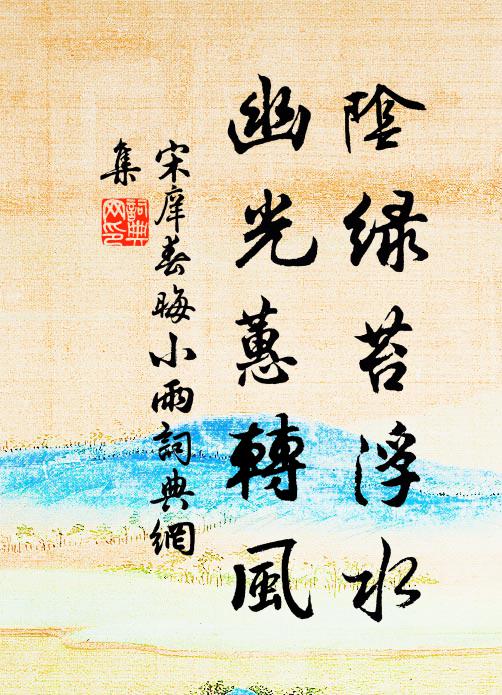 陰綠苔浮水
幽光蕙轉風
宋庠春晦小雨詞典網
集
詞典
网印